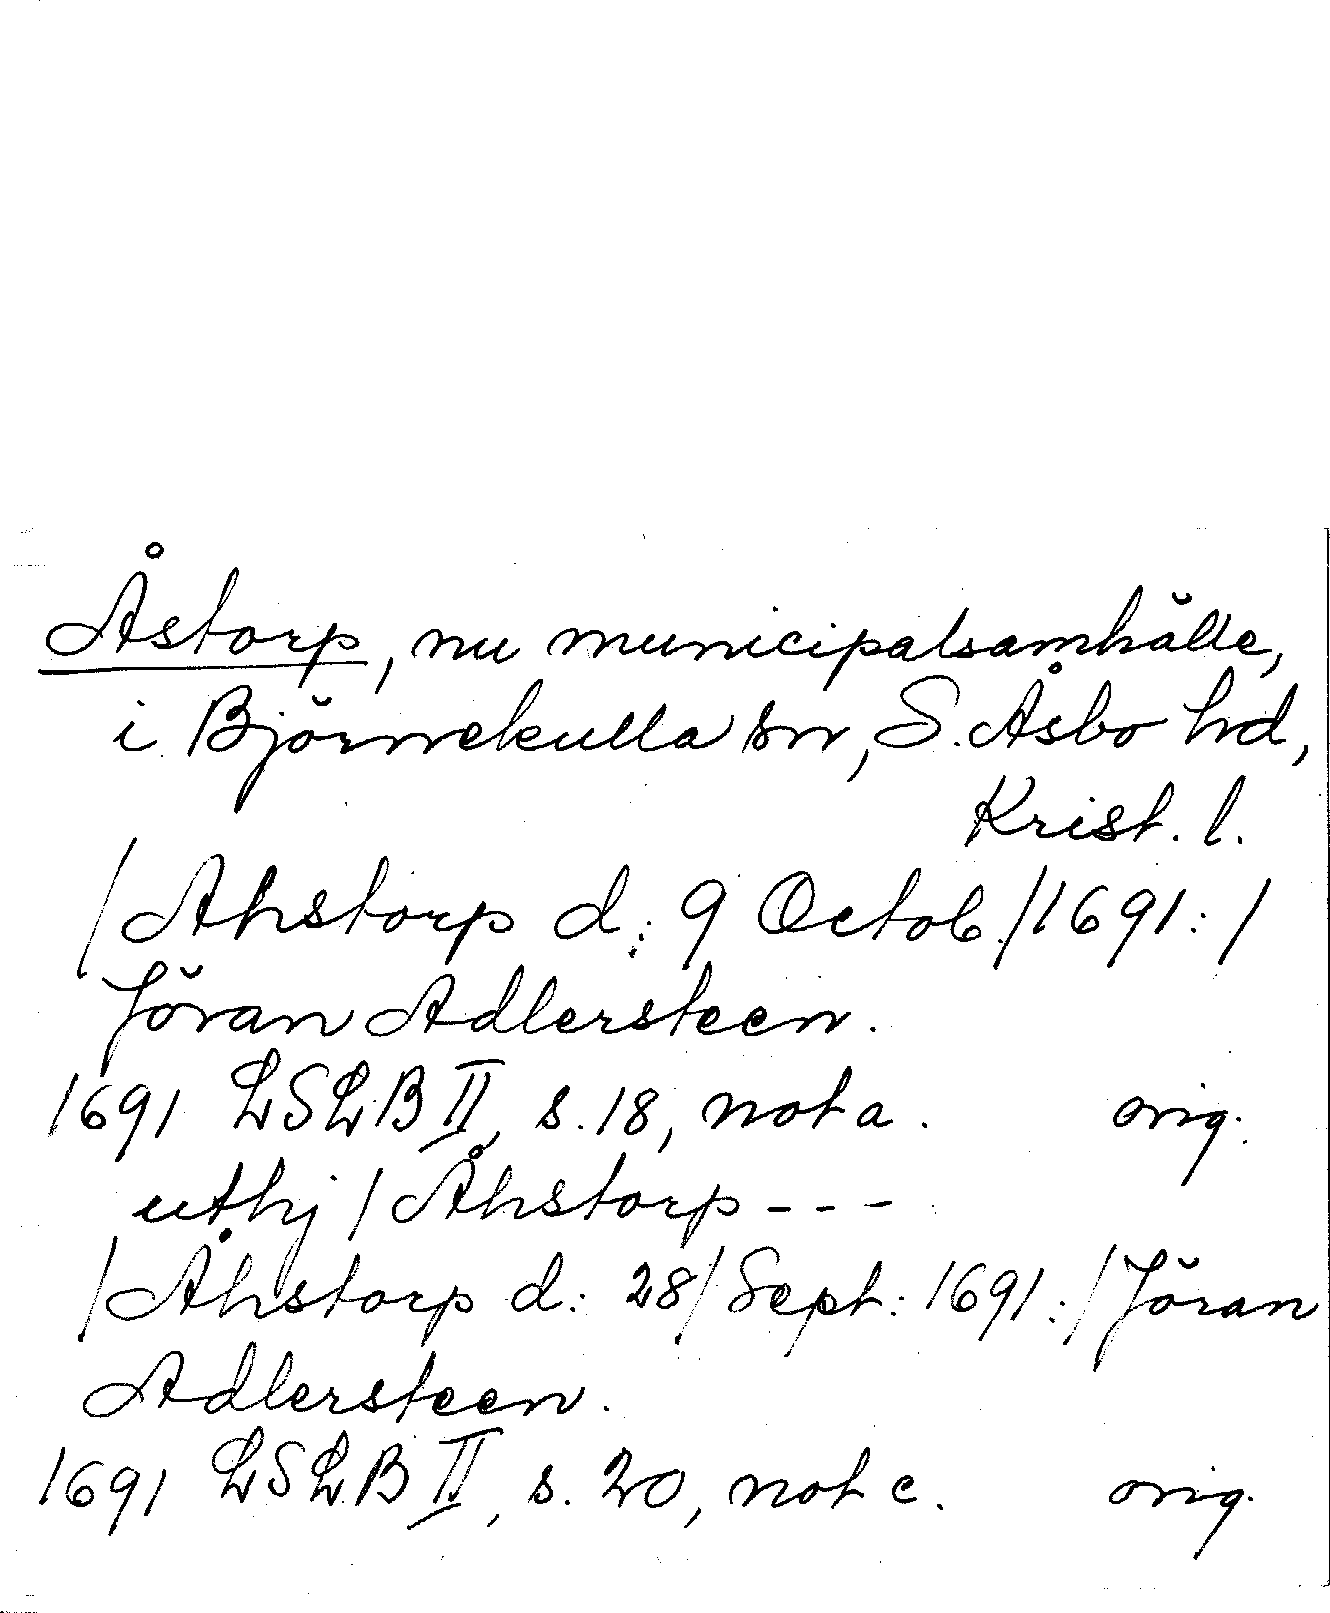 Åstorp, nu municipalsamhälle,
i Björnekulla sn, S. Åsbo hd,
Krist. l.
/Ahstorp d: 9 Octob./1691:/
Jöran Adlersteen.
1691 LSLB II, s. 18, not a. orig.
uthj / Åhstorp - - -
/Åhstorp d: 28/Sept: 1691:/Jöran
Adlersteen.
1691 LSLB II, s. 20, not c. orig.